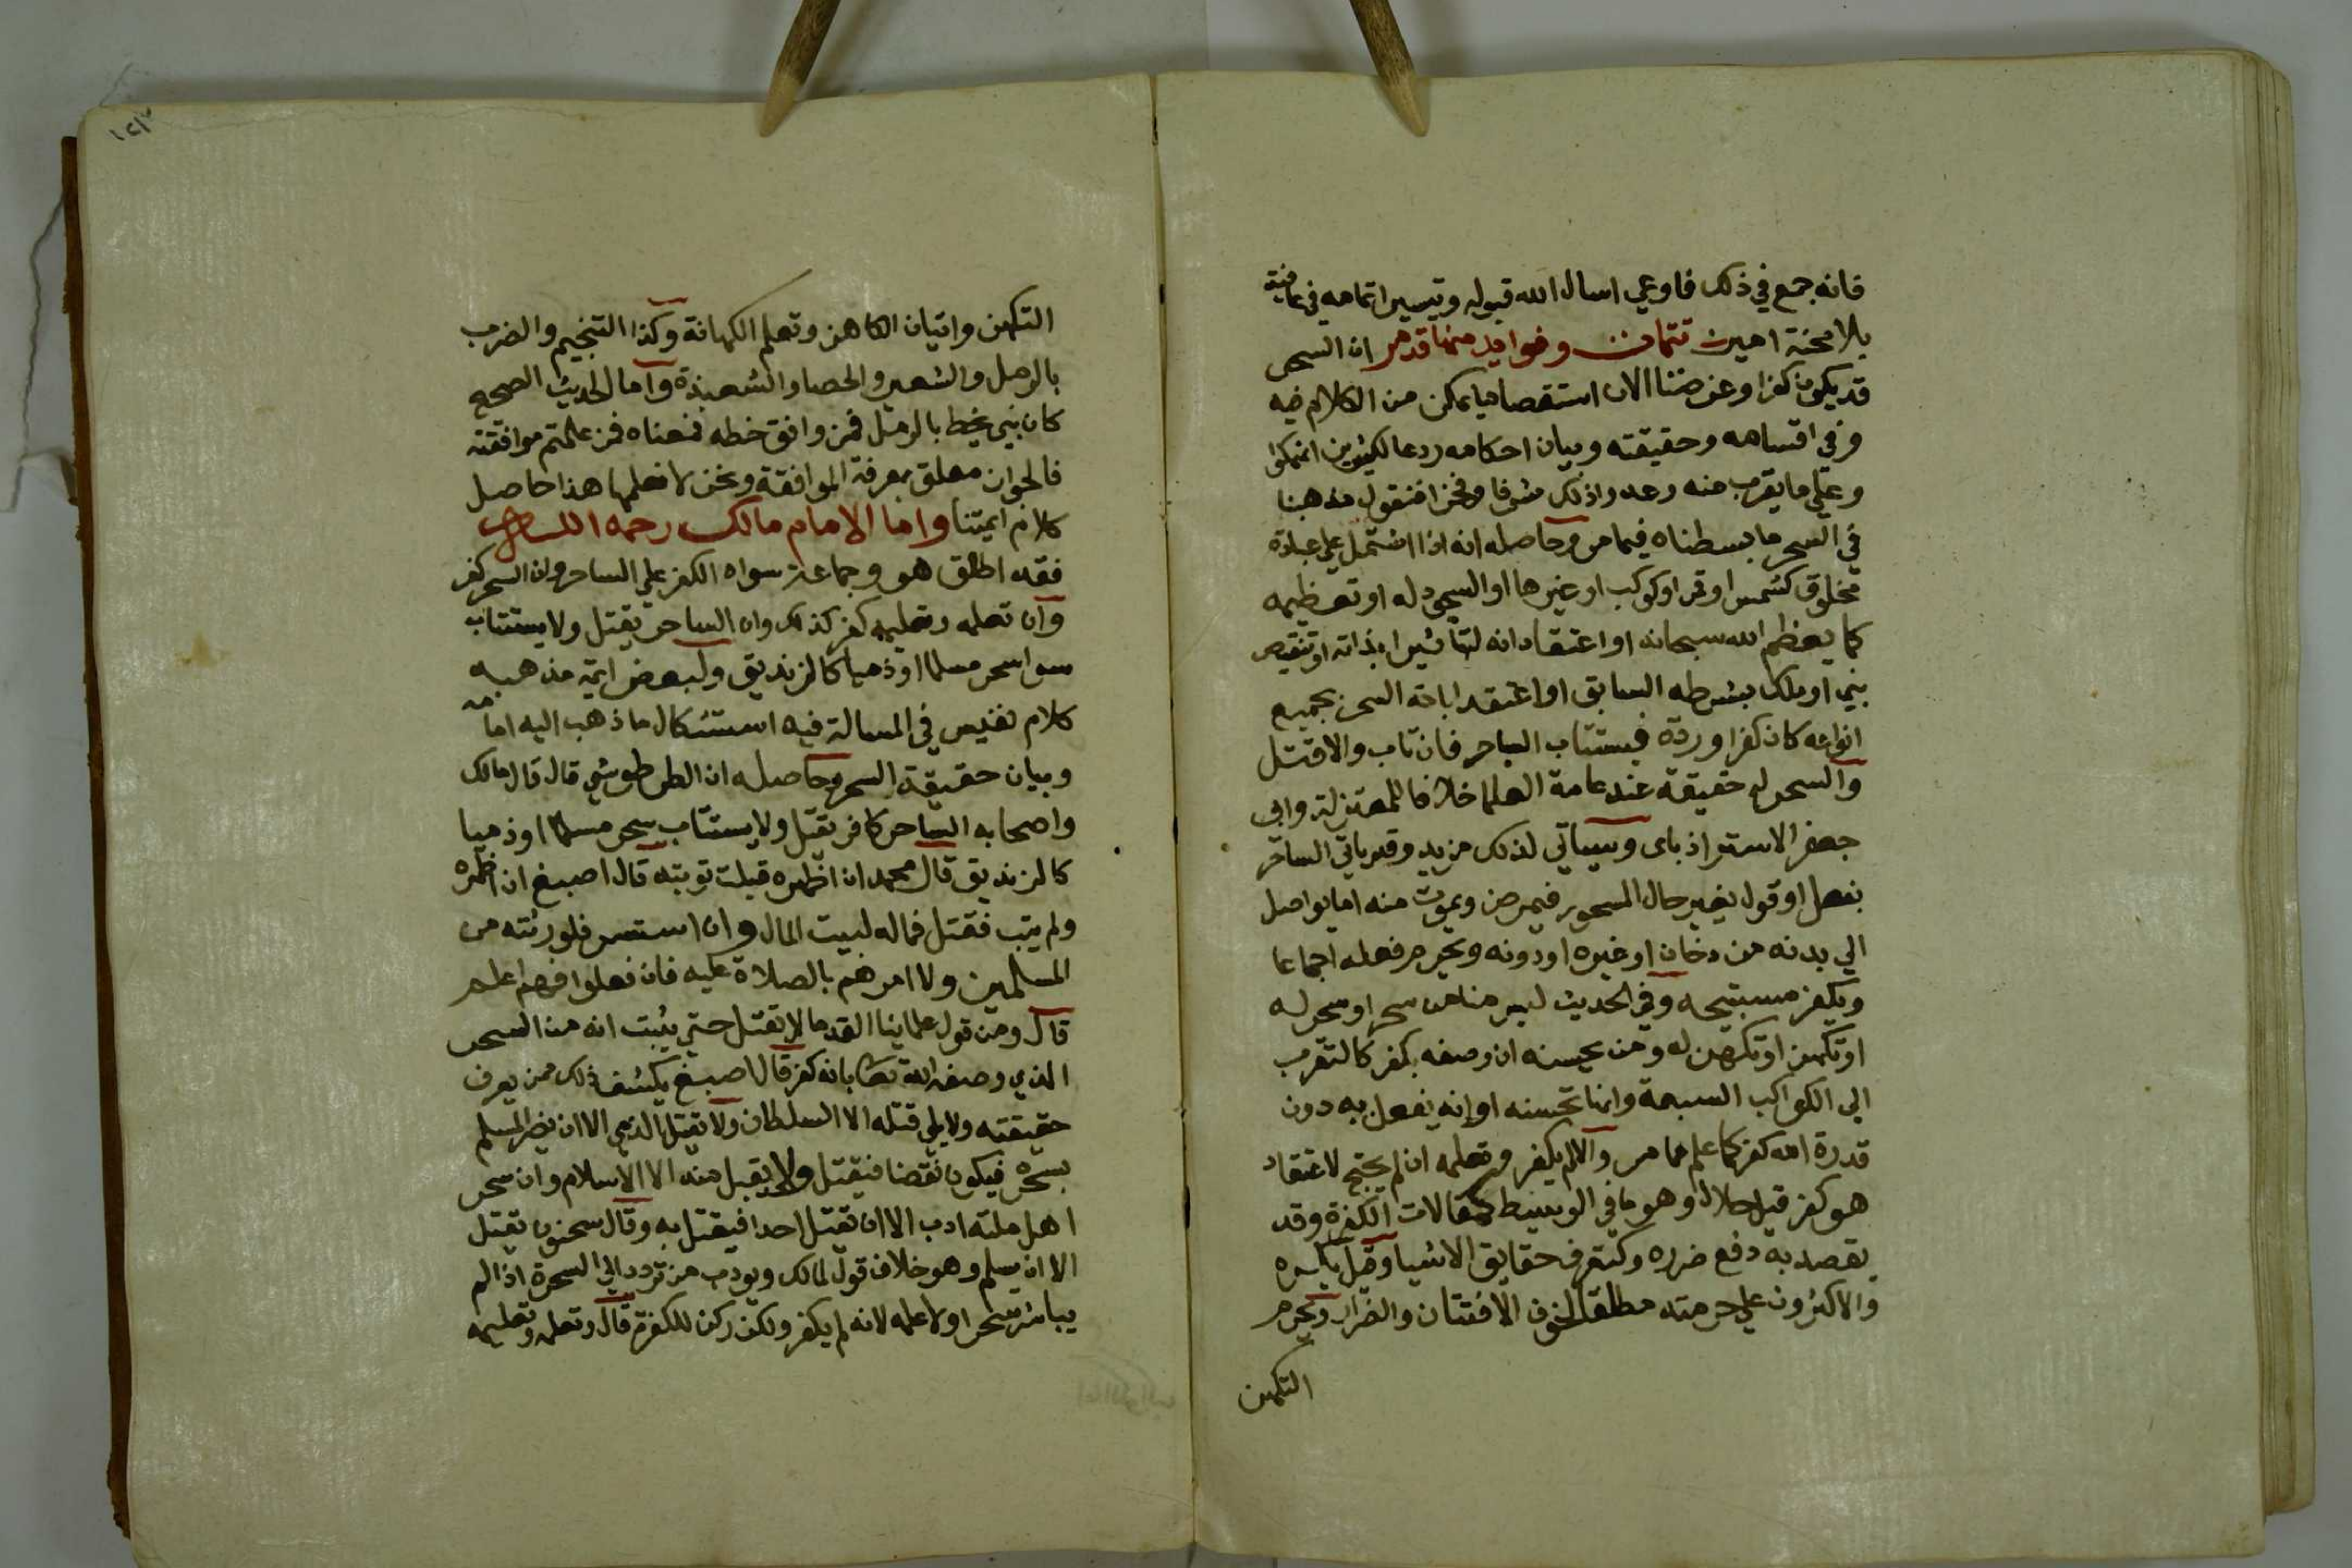 فانه جمع في ذلك فاوعي اسال الله قبوله وتيسير اتمامه في عافية
بلا محنة امين تتمات وفوايد منها قد مر ان السحر
قد يكون كفرا وغرضنا الان استقصا ما يمكن من الكلام فيه
وفي اقسامه وحقيقته وبيان احكامه ردعا لكثيرين انهمكوا
وعلي ما يقرب منه وعدوا ذلك شرفا وفخرا فنقول مذهبنا
في السحر ما بسطناه فيما مر وحاصله انه اذا اشتمل علي عبادة
مخلوق كشمس او قمر او كوكب او غيرها او السجود له او تعظيمه
كما يعظم الله سبحانه او اعتقاد انه له تاثيرا بذاته او تنقيص
نبي او ملك بشرطه السابق او اعتقد اباحة السحر بجميع
انواعه كان كفرا وردة فيستتاب الساحر فان تاب والا قتل
والسحر له حقيقة عند عامة العلما خلافا للمعتزلة وابي
جعفر الاستراذباى وسياتي لذلك مزيد وقد ياتي الساحر
بفعل او قول يغير حال المسحور فيمرض ويموت منه اما بواصل
الي بدنه من دخان او غيره او دونه ويحرم فعله اجماعا
ويكفر مستبيحه وفي الحديث ليس منا من سحر او سحر له
او تكهن او تكهن له ومن يحسنه ان وصفه بكفر كالتقرب
الي الكواكب السبعة وانها تحسنه او انه يفعل به دون
قدرة الله كفر كما علم مما مر والا لم يكفر وتعلمه ان لم يحتج لاعتقاد
هو كفر قيل حلال وهو ما في الوسيط كمقالات الكفرة وقد
يقصد به دفع ضرره وكتعرف حقايق الاشيا وقيل يكره
والاكثرون علي حرمته مطلقا لخوف الافتتان والضرار ويحرم
التكهن
التكهن واتيان الكاهن وتعلم الكهانة وكذا التنجيم والضرب
بالرمل والشعير والحصا والشعبذة واما الحديث الصحيح
كان نبي يخط بالرمل فمن وافق خطه فمعناه فمن علمتم موافقته
فالجواز معلق بمعرفة الموافقة ونحن لا نعلمها هذا حاصل
كلام ايمتنا واما الامام مالك رحمه الله
فقد اطلق هو وجماعة سواه الكفر علي الساحر وان السحر كفر
وان تعلمه وتعليمه كفر كذلك وان الساحر يقتل ولا يستتاب
سوا سحر مسلما او ذميا كالزنديق ولبعض ايمة مذهبه
كلام نفيس في المسالة فيه استشكال ما ذهب اليه امامه
وبيان حقيقة السحر وحاصله ان الطرطوشي قال قال مالك
واصحابه الساحر كافر يقتل ولا يستتاب سحر مسلما او ذميا
كالزنديق قال محمد ان اظهره قبلت توبته قال اصبغ ان اظهره
ولم يتب فقتل فماله لبيت المال وان استسر فلورثته من
المسلمين ولا امرهم بالصلاة عليه فان فعلوا فهم اعلم
قال ومن قول علماينا القدما لا يقتل حتي يثبت انه من السحر
الذي وصفه الله تعا بانه كفر قال اصبغ يكشف ذلك ممن يعرف
حقيقته ولا يلي قتله الا السلطان ولا يقتل الذمي الا ان يضر المسلم
بسحره فيكون نقضا فيقتل ولا يقبل منه الا الاسلام وان سحر
اهل ملته ادب الا ان يقتل احدا فيقتل به وقال سحنون يقتل
الا ان يسلم وهو خلاف قول لمالك ويودب من تردد الي السحرة اذا لم
يباشر سحرا ولا علمه لانه لم يكفر ولكن ركن للكفرة قال وتعلمه وتعليمه